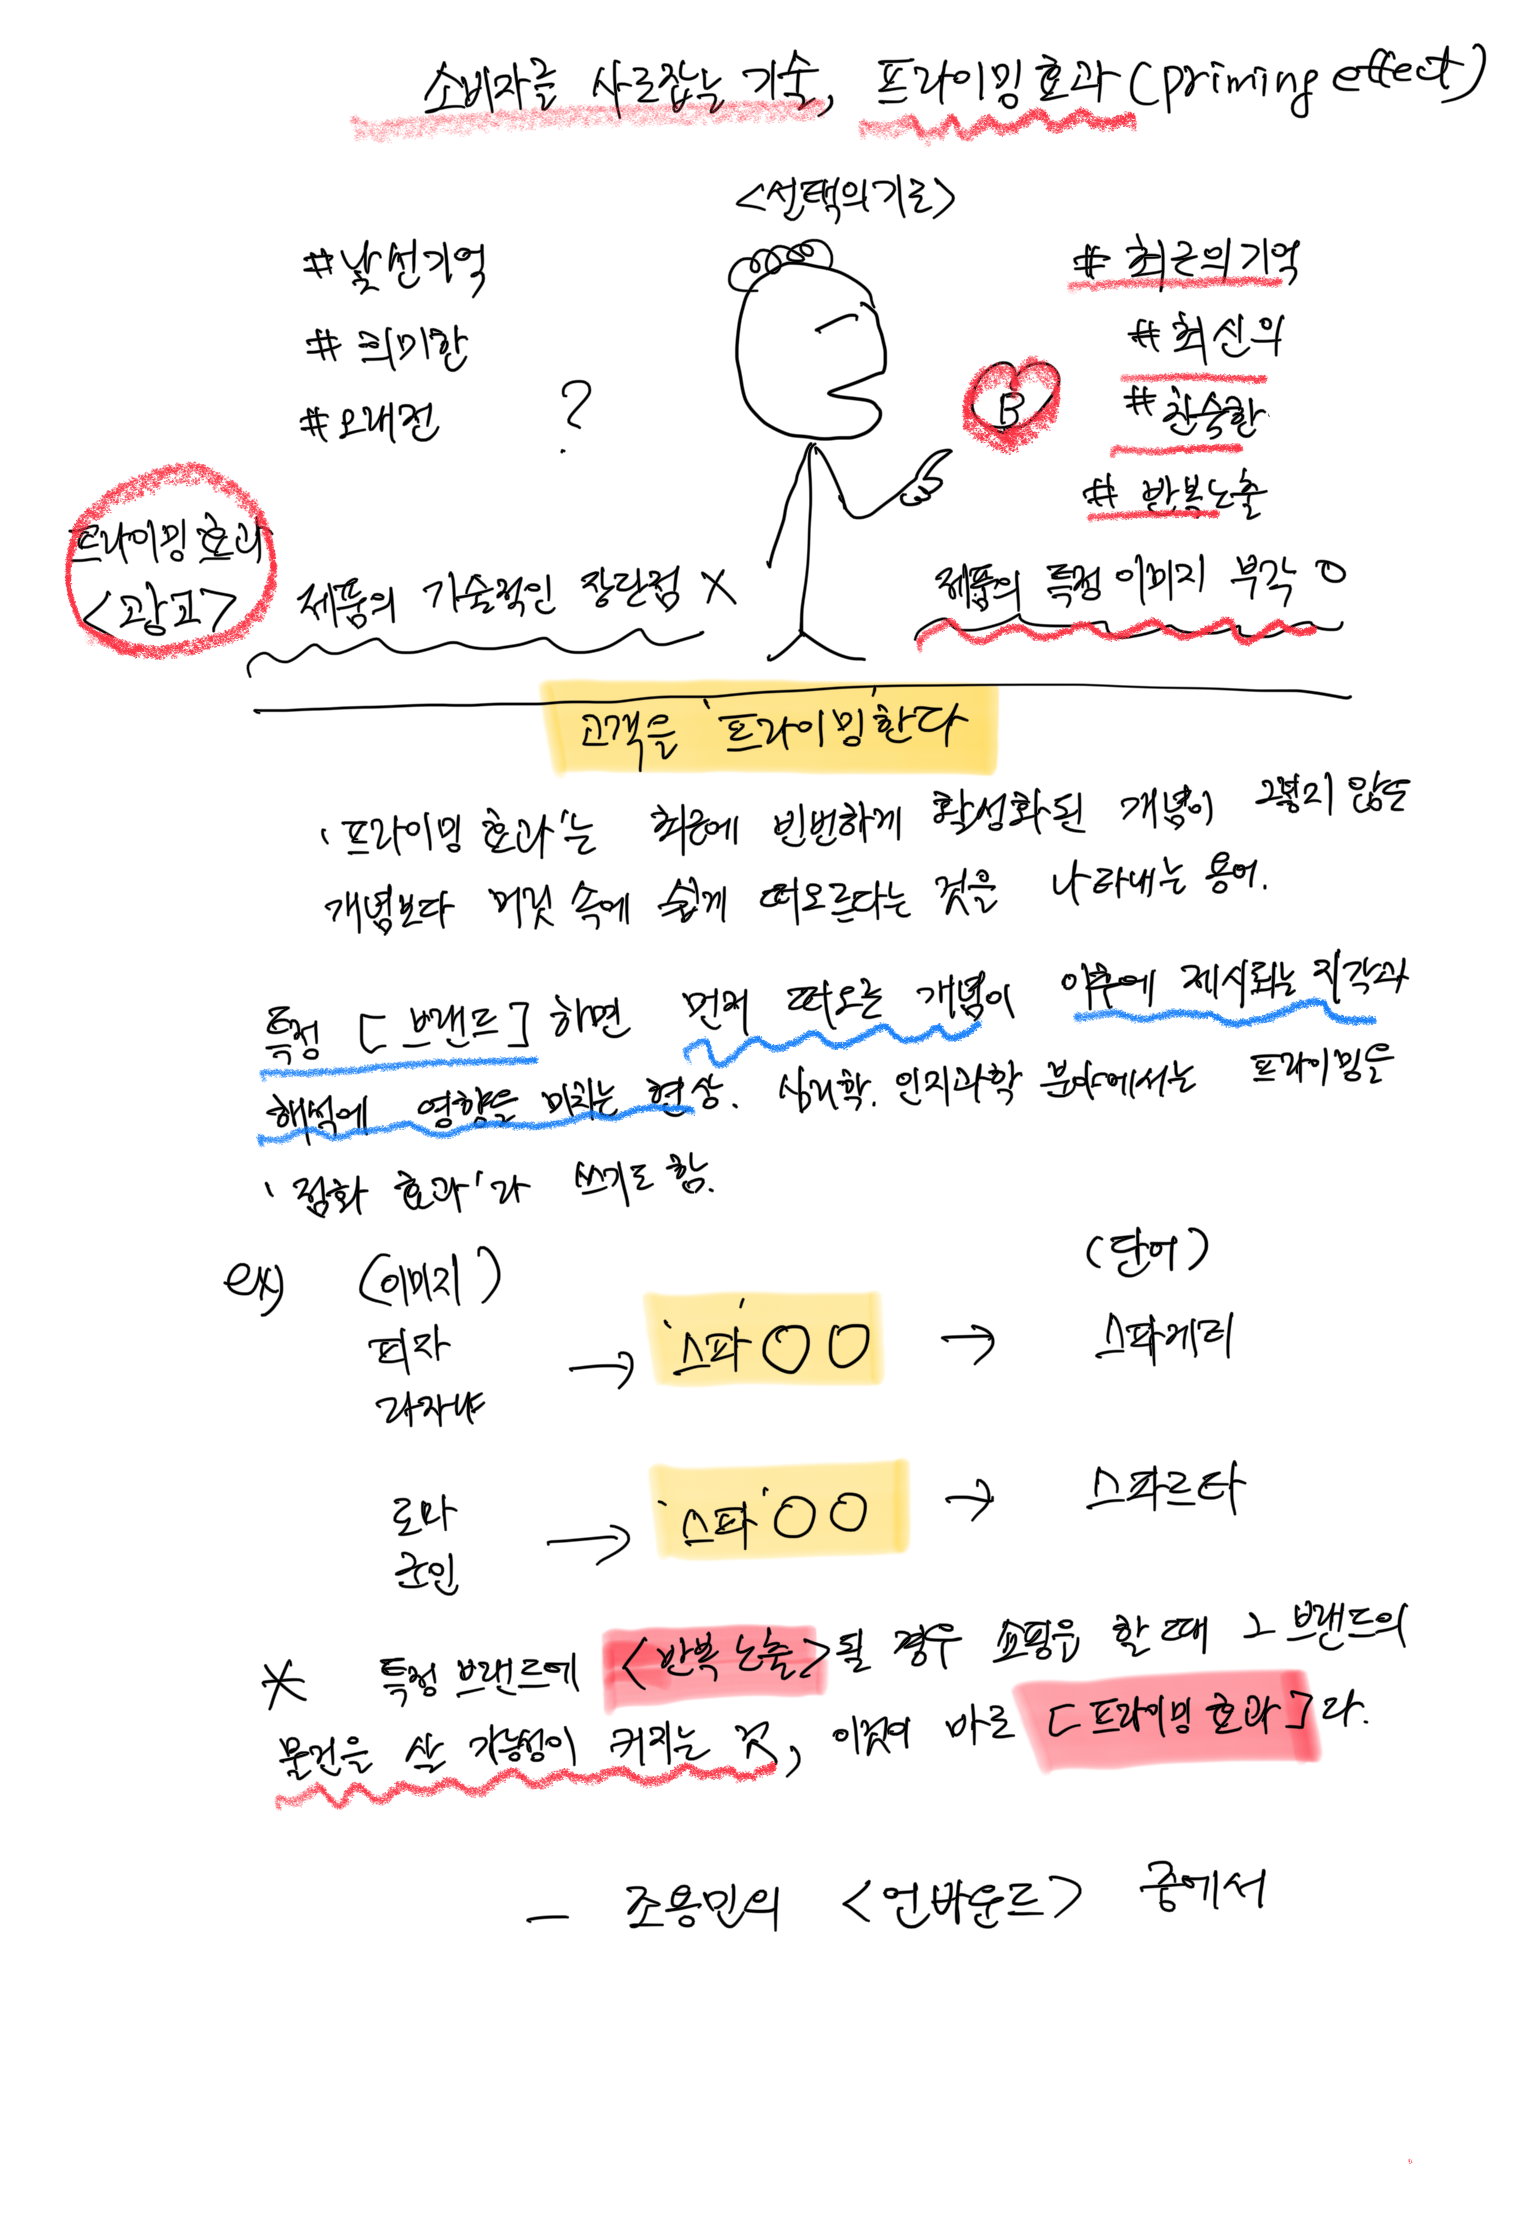 소비자를 사로잡는 기술, 프라이밍 효과 (priming effect)
<선택의 기로>
#낯선기억
#희미한
#오래전
?
B
#최근의기억
#최신의
#친숙한
#반복노출
프라이밍 효과
<광고>
제품의 기술적인 장단점 X
제품의 특정 이미지 부각 O
고객을 '프라이밍'한다
'프라이밍 효과'는 최근에 빈번하게 활성화된 개념이 그렇지 않은
개념보다 머릿 속에 쉽게 떠오른다는 것을 나타내는 용어.
특정 [브랜드] 하면 먼저 떠오른 개념이 이후에 제시되는 지각과
해석에 영향을 미치는 현상. 심리학. 인지과학 분야에서는 프라이밍을
'점화 효과'라 쓰기도 함.
ex) (이미지) (단어)
피자
라자냐
→ '스파'○○ → 스파게티
로마
군인
→ '스파'○○ → 스파르타
* 특정 브랜드에 <반복 노출>될 경우 쇼핑을 할 때 그 브랜드의
물건을 살 가능성이 커지는 것, 이것이 바로 [프라이밍 효과]라.
- 조용민의 <언바운드> 중에서